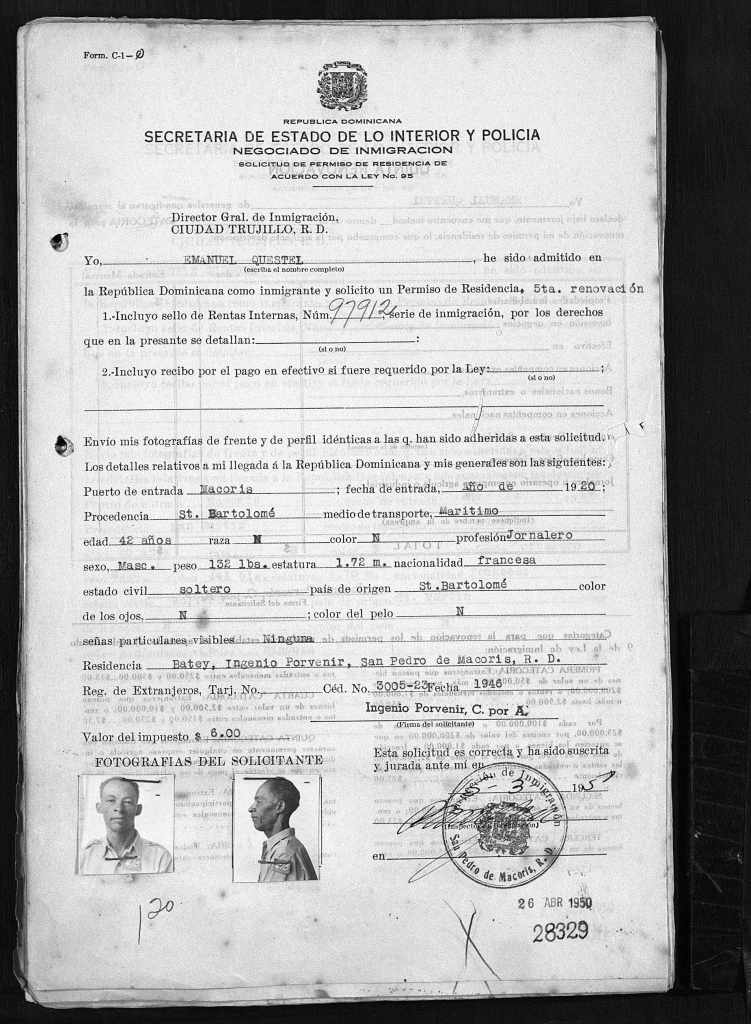 Form. C-1-
REPUBLICA DOMINICANA
SECRETARIA DE ESTADO DE LO INTERIOR Y POLICIA
NEGOCIADO DE INMIGRACION
SOLICITUD DE PERMISO DE RESIDENCIA DE
ACUERDO CON LA LEY No. 95
Director Gral. de Inmigración,
CIUDAD TRUJILLO, R. D.
Yo, EMANUEL QUESTEL, he sido admitido en
(escriba el nombre completo)
la República Dominicana como inmigrante y solicito un Permiso de Residencia, 5ta. renovación
1.-Incluyo sello de Rentas Internas, Núm. 97912, serie de inmigración, por los derechos
que en la presante se detallan: :
(si o no)
2.-Incluyo recibo por el pago en efectivo si fuere requerido por la Ley: ;
(si o no)
Envío mis fotografías de frente y de perfil idénticas a las q. han sido adheridas a esta solicitud.
Los detalles relativos a mi llegada á la República Dominicana y mis generales son las siguientes:
Puerto de entrada Macoris ; fecha de entrada, Año de 1920;
Procedencia St. Bartolomé medio de transporte, Marítimo
edad 42 años raza N color N profesión Jornalero
sexo, Masc. peso 132 lbs. estatura 1.72 m. nacionalidad francesa
estado civil soltero país de origen St.Bartolomé color
de los ojos, N ; color del pelo N
señas particulares visibles Ninguna
Residencia Batey, Ingenio Porvenir, San Pedro de Macoris, R. D.
Reg. de Extranjeros, Tarj. No. Céd. No. 3005-23 Fecha 1946
Ingenio Porvenir, C. por A.
(Firma del solicitante)
Valor del impuesto $ 6.00
Esta solicitud es correcta y ha sido suscrita
y jurada ante mí en
FOTOGRAFIAS DEL SOLICITANTE
5-3 195
Inspección de Inmigración
San Pedro de Macoris, R. D.
en
120
26 ABR 1950
28329